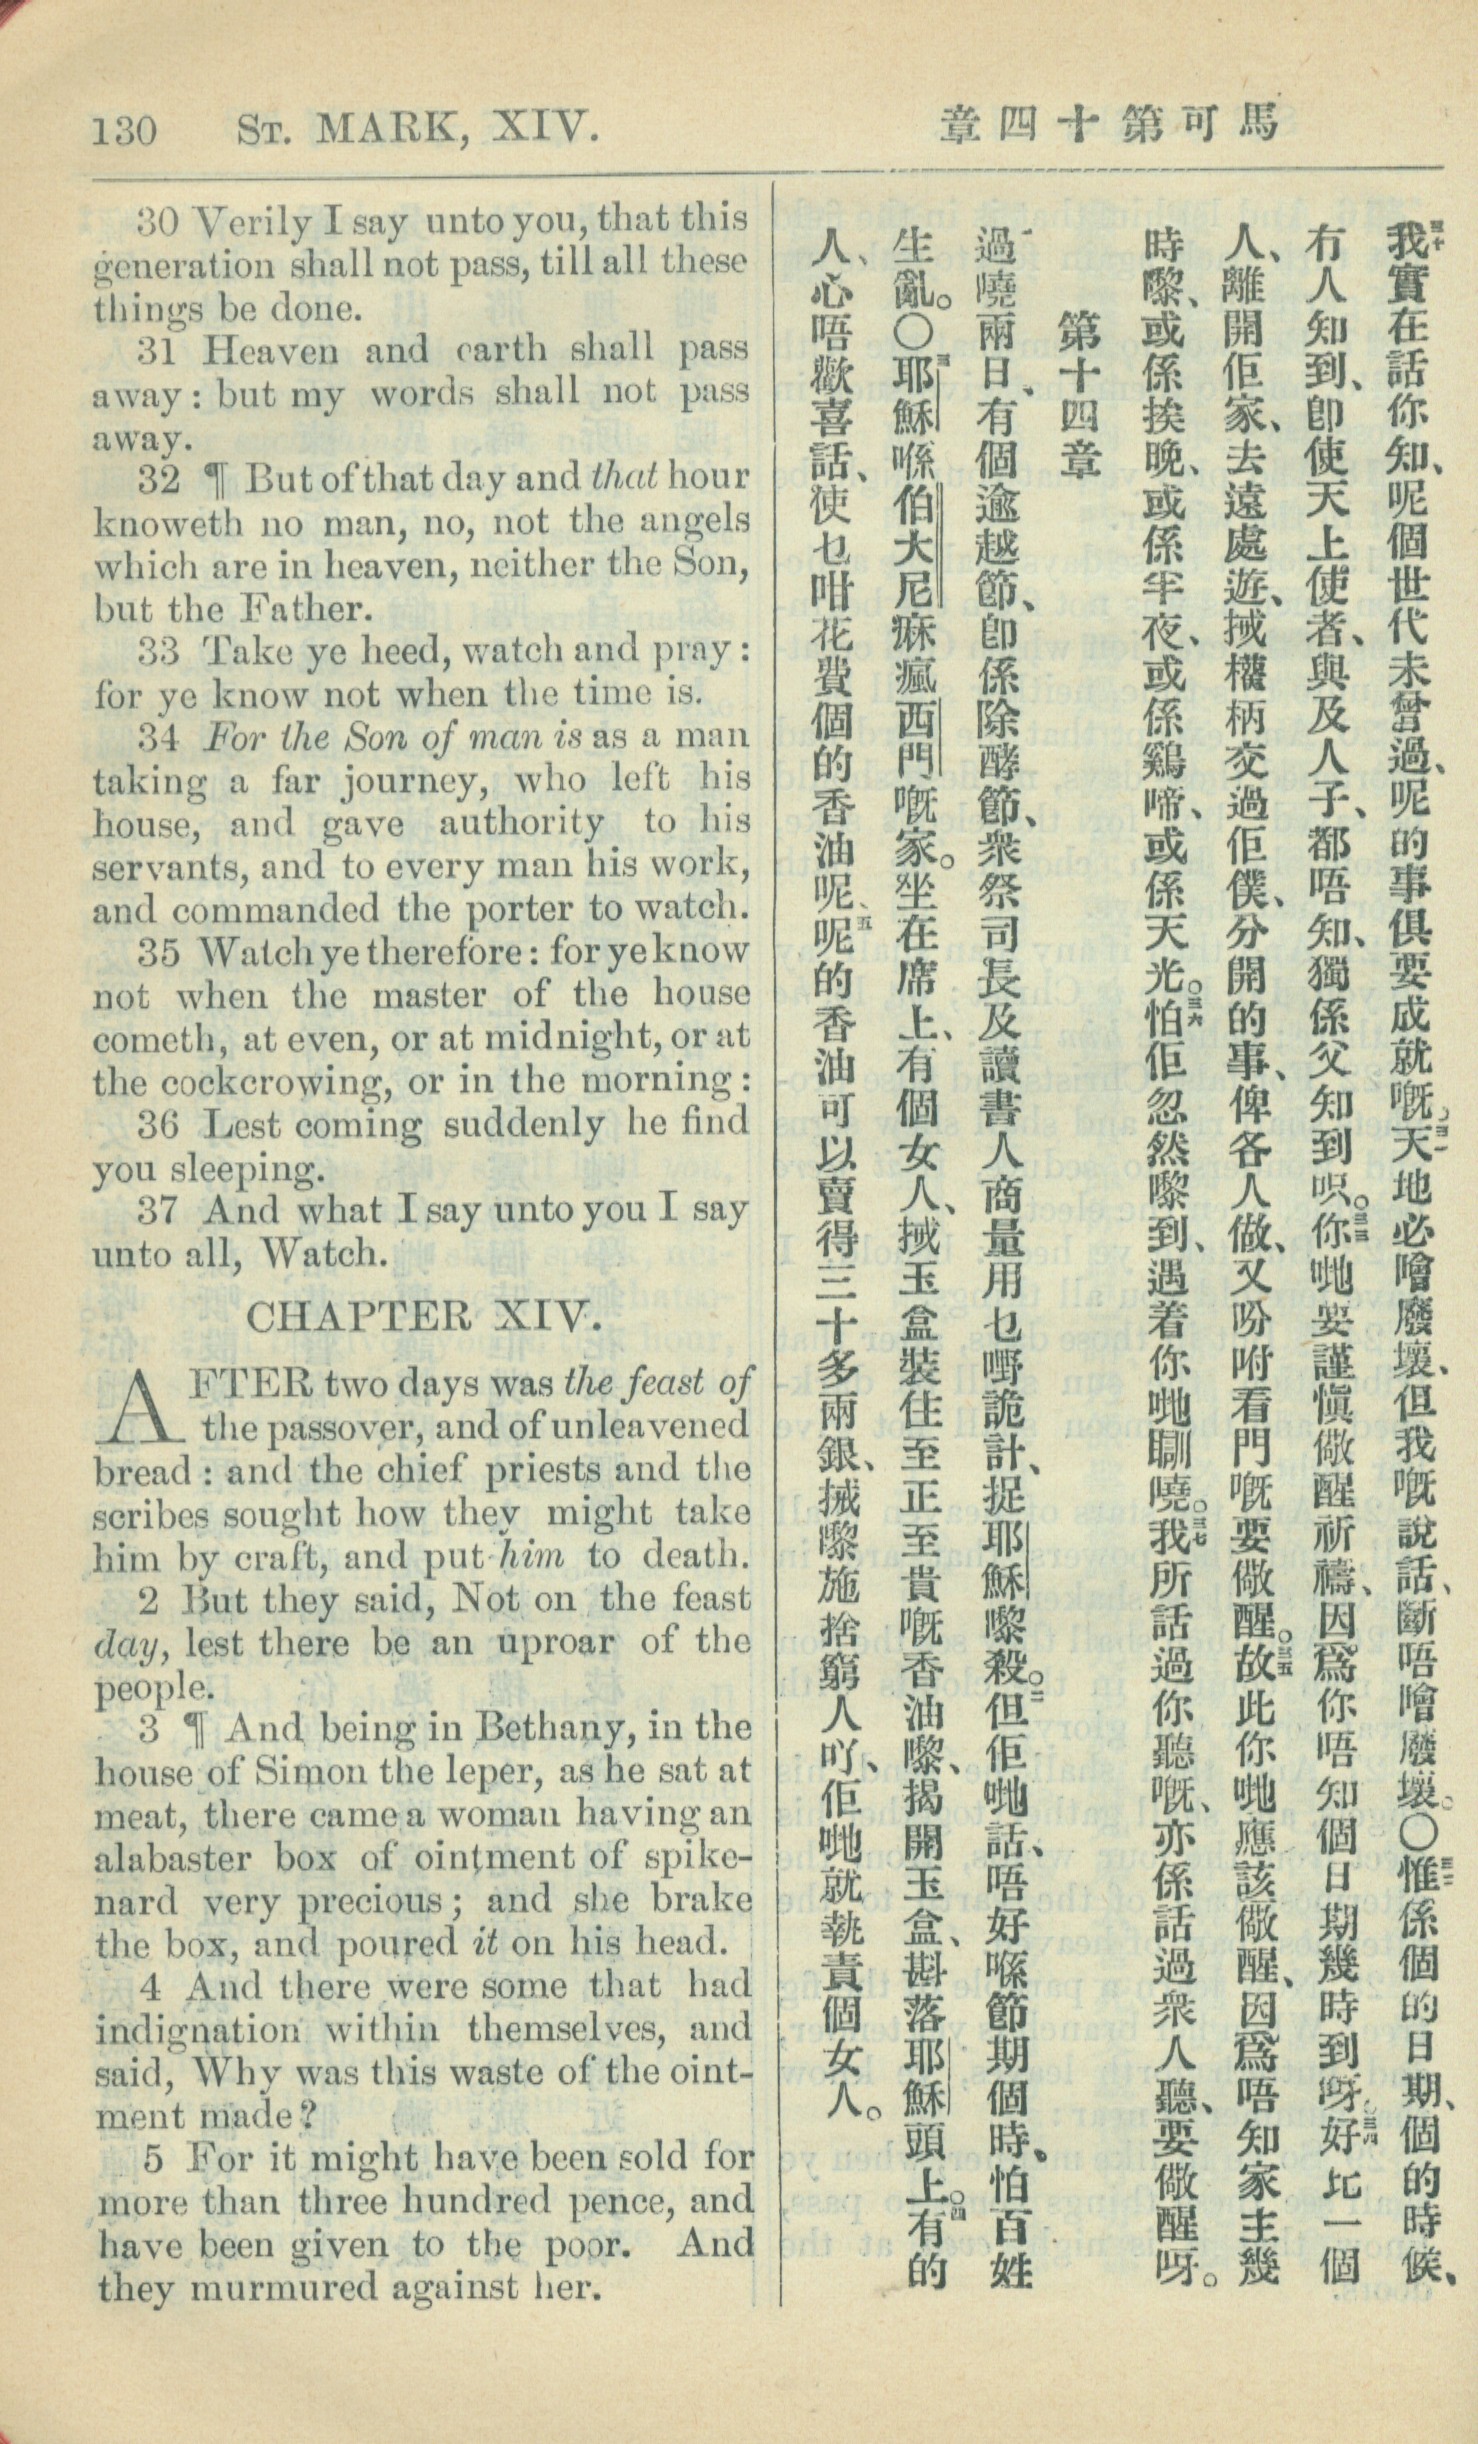 130 ST. MARK, XIV.
章四十第可馬
30 Verily I say unto you, that this
generation shall not pass, till all these
things be done.
31 Heaven and earth shall pass
away: but my words shall not pass
away.
32 ¶ But of that day and that hour
knoweth no man, no, not the angels
which are in heaven, neither the Son,
but the Father.
33 Take ye heed, watch and pray:
for ye know not when the time is.
34 For the Son of man is as a man
taking a far journey, who left his
house, and gave authority to his
servants, and to every man his work,
and commanded the porter to watch.
35 Watch ye therefore: for ye know
not when the master of the house
cometh, at even, or at midnight, or at
the cockcrowing, or in the morning:
36 Lest coming suddenly he find
you sleeping.
37 And what I say unto you I say
unto all, Watch.
CHAPTER XIV.
AFTER two days was the feast of
the passover, and of unleavened
bread: and the chief priests and the
scribes sought how they might take
him by craft, and put him to death.
2 But they said, Not on the feast
day, lest there be an uproar of the
people.
3 ¶ And being in Bethany, in the
house of Simon the leper, as he sat at
meat, there came a woman having an
alabaster box of ointment of spike-
nard very precious; and she brake
the box, and poured it on his head.
4 And there were some that had
indignation within themselves, and
said, Why was this waste of the oint-
ment made?
5 For it might have been sold for
more than three hundred pence, and
have been given to the poor. And
they murmured against her.
三十我實在話你知、呢個世代未曾過、呢的事俱要成就嘅。三一天地必噲廢壞、但我嘅說話、斷唔噲廢壞。〇三二惟係個的日期、個的時候、
冇人知到、卽使天上使者、與及人子、都唔知、獨係父知到呮。三三你哋要謹愼儆醒祈禱、因爲你唔知個日期幾時到呀。三四好比一個
人、離開佢家、去遠處遊、搣權柄交過佢僕、分開的事、俾各人做、又吩咐看門嘅要儆醒。三五故此你哋應該儆醒、因爲唔知家主幾
時嚟、或係挨晚、或係半夜、或係鷄啼、或係天光。三六怕佢忽然嚟到、遇着你哋瞓嘵。三七我所話過你聽嘅、亦係話過衆人聽、要儆醒呀。
第十四章
一過嘵兩日、有個逾越節、卽係除酵節、衆祭司長及讀書人商量用乜嘢詭計、捉耶穌嚟殺。二但佢哋話、唔好喺節期個時、怕百姓
生亂。〇三耶穌喺伯大尼痳瘋西門嘅家。坐在席上、有個女人、搣玉盒裝住至正至貴嘅香油嚟、揭開玉盒、斟落耶穌頭上。四有的
人、心唔歡喜話、使乜咁花費個的香油呢、五呢的香油可以賣得三十多兩銀、搣嚟施捨窮人吖、佢哋就執責個女人。